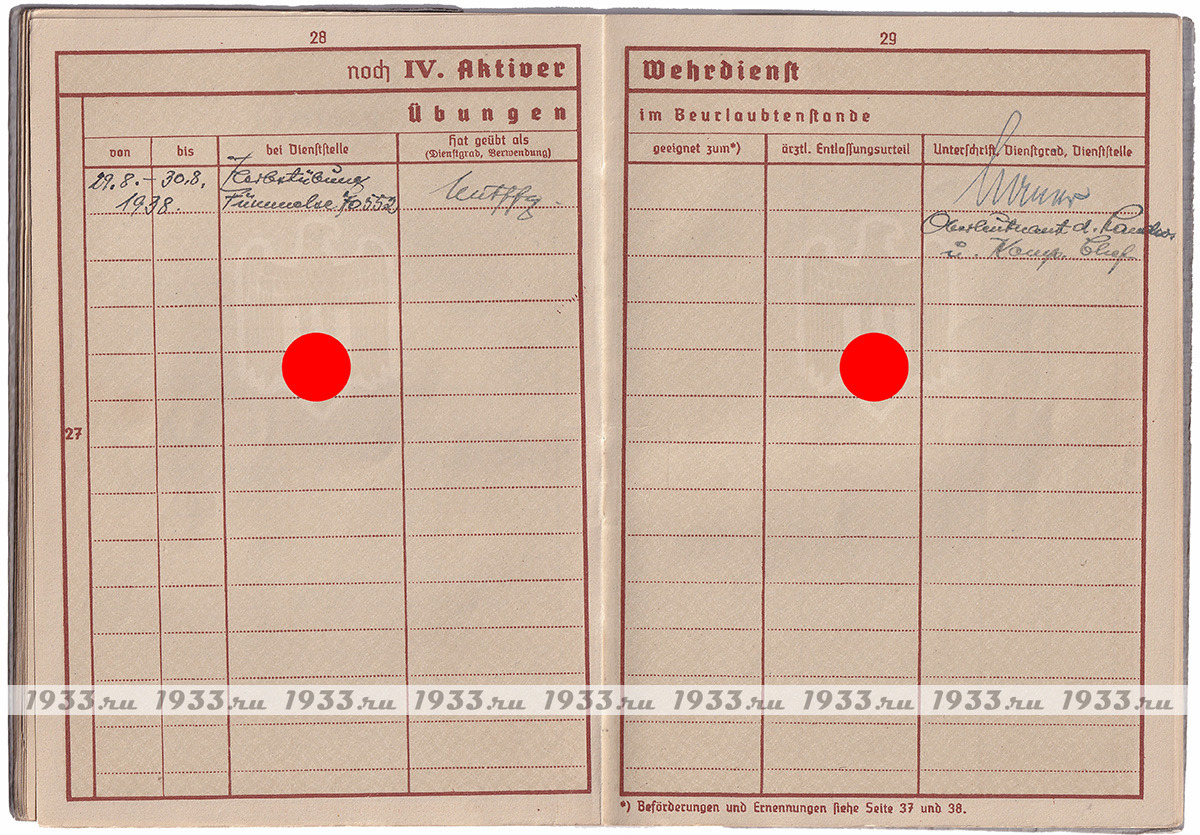 28
noch IV. Aktiver
Übungen
von
bis
bei Dienststelle
Hat geübt als
(Dienstgrad, Verwendung)
29.8. – 30.8. Herbstübung
1938.
27
29
Wehrdienst
im Beurlaubtenstande
geeignet zum*)
ärztl. Entlassungsurteil
Unterschrift, Dienstgrad, Dienststelle
Oberleutnant d.
u. Komp. Chef
*) Beförderungen und Ernennungen siehe Seite 37 und 38.
1933.ru 1933.ru 1933.ru 1933.ru 1933.ru 1933.ru 1933.ru 1933.ru 1933.ru